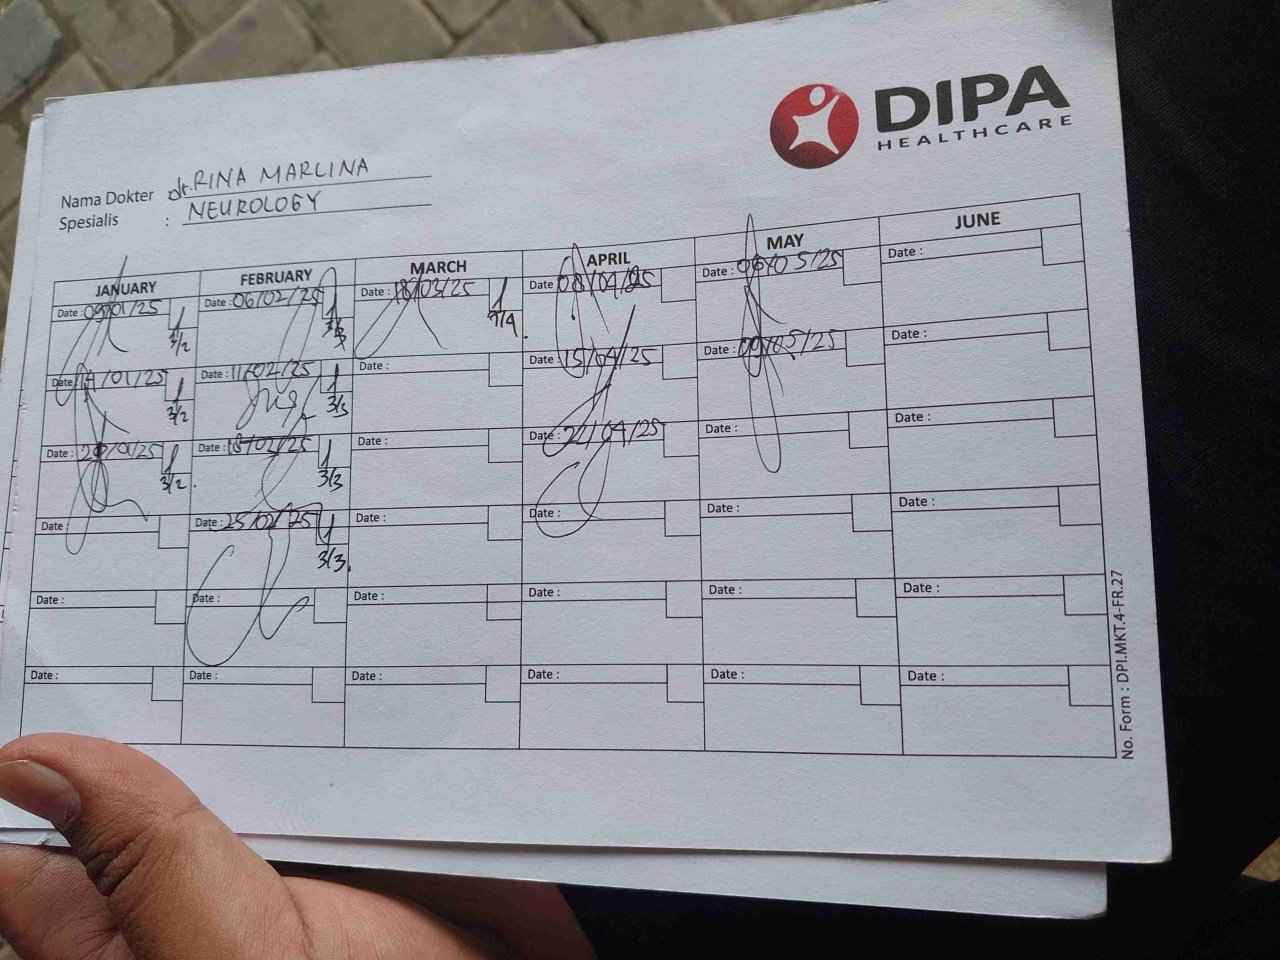 DIPA
HEALTHCARE
Nama Dokter dr. RINA MARLINA
Spesialis : NEUROLOGY
JANUARY FEBRUARY MARCH APRIL MAY JUNE
Date : 09/01/25 Date : 06/02/25 Date : 18/03/25 Date : 08/04/25 Date : 06/05/25 Date :
3/2 7/4
Date : 14/01/25 Date : 11/02/25 Date : Date : 15/04/25 Date : 09/05/25 Date :
3/2 3/3
Date : /01/25 Date : 18/02/25 Date : Date : 22/04/25 Date : Date :
3/2 3/3
Date : Date : 25/02/25 Date : Date : Date : Date :
3/3
Date : Date : Date : Date : Date : Date :
Date : Date : Date : Date : Date : Date :
No. Form : DPI.MKT.4-FR.27